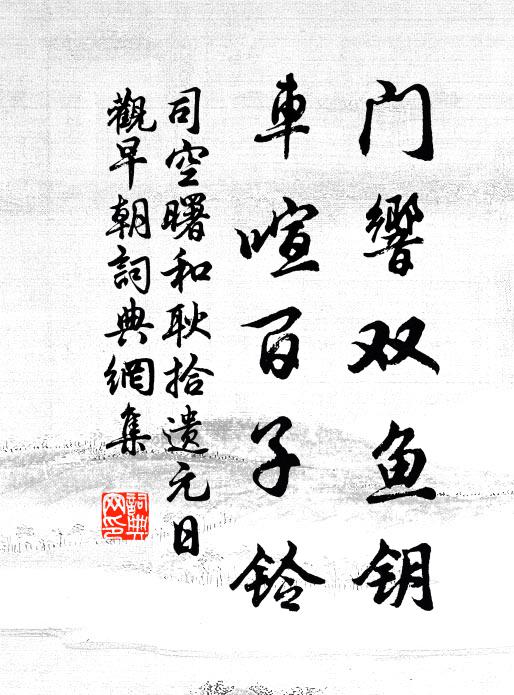 门響双鱼钥
車喧百子铃
司空曙和耿拾遗元日
觀早朝詞典網集
詞典
网印